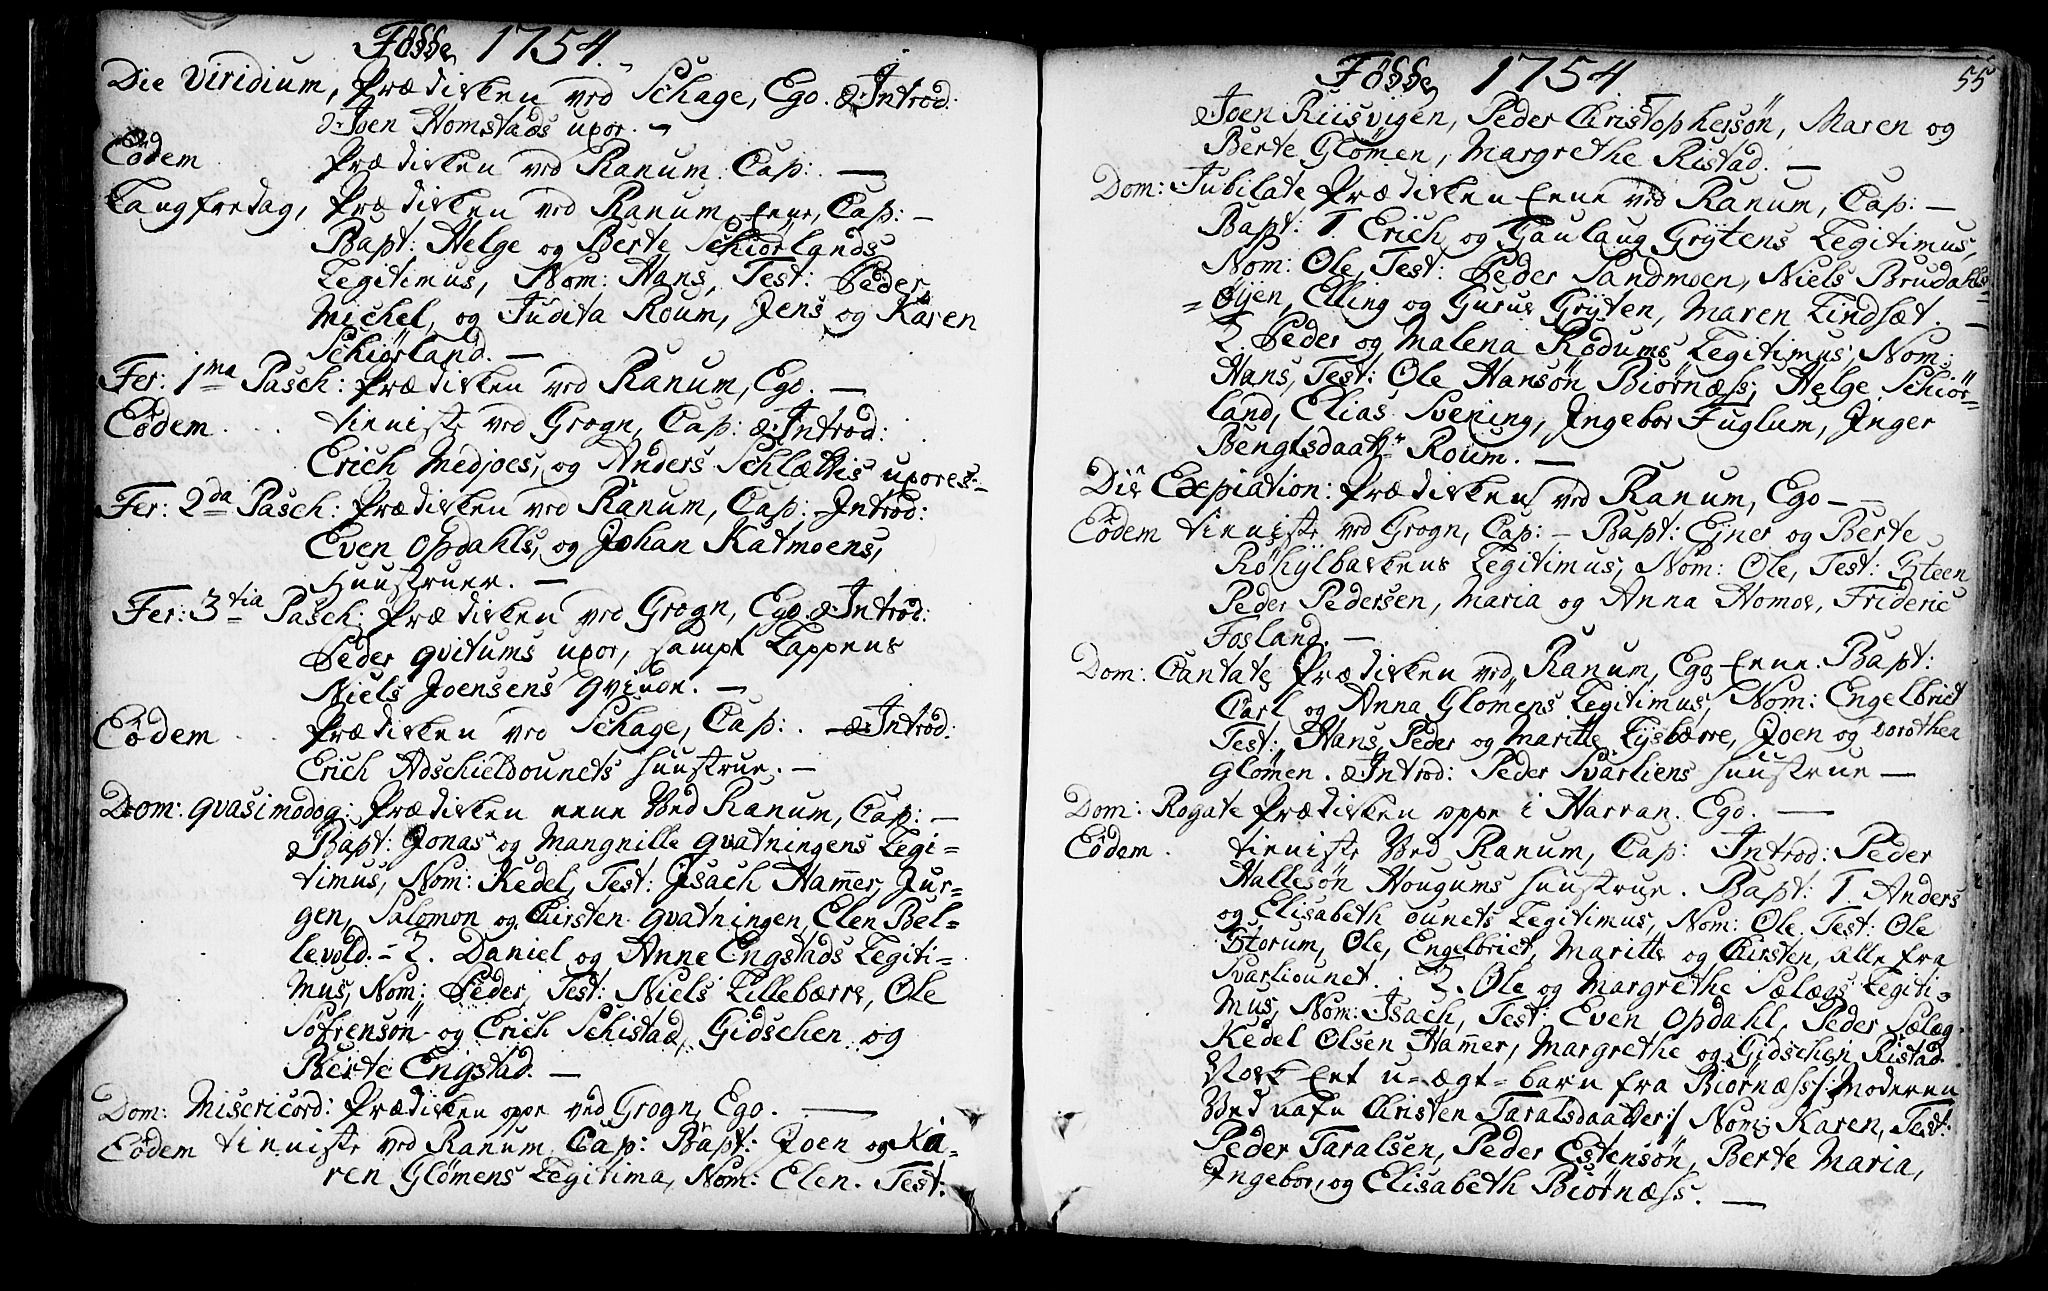 Fødde 1754.
Die Viridium, Prædicken ved Schage, Ego. & Introd:
Joen Homstads uxor. —
Eodem Prædicken ved Ranum. Cap: —
Langfredag, Prædicken ved Ranum Eene, Cap: —
Bapt: Helge og Berte Schiørlands
Legitimus, Nom: Hans, Test: Peder,
Michel, og Judita Roum, Jens og Karen
Schiørland. —
Fer: 1ma Pasch: Prædicken ved Ranum, Ego. —
Eodem . . . tieniste ved Grogn, Cap: & Introd:
Erich Medjoes, og Anders Schlættis uxores. —
Fer: 2da Pasch: Prædicken ved Ranum, Cap: Introd:
Even Opdahls, og Johan Katmoens,
Huustruer. —
Fer: 3tia Pasch: Prædicken ved Grogn, Ego. & Introd:
Peder Qvitums uxor, sampt Lappens
Niels Joensens Qvinde. —
Eodem . . Prædicken ved Schage, Cap: . & Introd:
Erich Adschieldounets Huustrue. —
Dom: Qvasimodog: Prædicken eene Ved Ranum, Cap: —
Bapt: Jonas og Mangnille Qvatningens Legi=
timus, Nom: Kedel, Test: Isach Ham̃er, Jur=
gen, Salomon og Chirsten Qvatningen, Elen Bel=
levold. = 2. Daniel og Anne Engstads Legiti=
mus, Nom: Peder, Test: Niels Lillebærre, Ole
Søfrensøn og Erich Schistad, Gidschen og
Berte Engstad. —
Dom: Misericord: Prædicken oppe ved Grogn, Ego. —
Eodem tieniste ved Ranum, Cap: Bapt: Joen og Ka=
ren Glømens Legitima, Nom: Elen. Test:
Fødde 1754. 55
Joen Riisvigen, Peder Christophersøn, Maren og
Berte Glømen, Margrethe Ristad. —
Dom: Jubilate Prædicken Eene ved Ranum, Cap: —
Bapt: 1 Erich og Gaulaug Grytens Legitimus,
Nom: Ole, Test: Peder Sandmoen, Niels Brudahls=
=Øyen, Elling og Gurue Gryten, Maren Lindsæt. —
2. Peder og Malena Rødums Legitimus, Nom:
Hans, Test: Ole Hansøn Biørnæss, Helge Schiør=
land, Elias Svening, Ingebor Fuglum, Inger
Bengtsdaatr Roum. —
Die Expiation: Prædicken ved Ranum, Ego — —
Eodem tieniste ved Grogn, Cap: — Bapt: Ejner og Berte
Røhylbackens Legitimus, Nom: Ole, Test: Steen
Peder Pedersen, Maria og Anna Homoe, Frideric
Fosland. —
Dom: Cantate Prædicken ved Ranum, Ego Eene. Bapt:
Carl og Anna Glømens Legitimus, Nom: Engelbrict
Test: Hans, Peder og Maritte Lysbærre, Joen og Dorothea
Glømen. & Introd: Peder Svarliens Huustrue —
Dom: Rogate Prædicken oppe i Harran. Ego. —
Eodem . tieniste Ved Ranum, Cap: Introd: Peder
Hallesøn Hougums Huustrue. Bapt: 1. Anders
og Elisabeth ounets Legitimus, Nom: Ole. Test: Ole
Storum, Ole, Engelbrict, Maritte og Chirsten, alle fra
Svarliounet. . 2. Ole og Margrethe Sælægs Legiti=
mus, Nom: Isach, Test: Even Opdahl, Peder Sælæg
Kedel Olsen Ham̃er, Margrethe og Gidschen Ristad.
Nock Eet u=ægt=barn fra Biørnæss /: Moderen
Ved nafn Christen Taralsdaatter :/ Nom: Karen, Test:
Peder Taralsen, Peder Estensøn, Berte Maria,
Ingebor, og Elisabeth Biørnæss. —